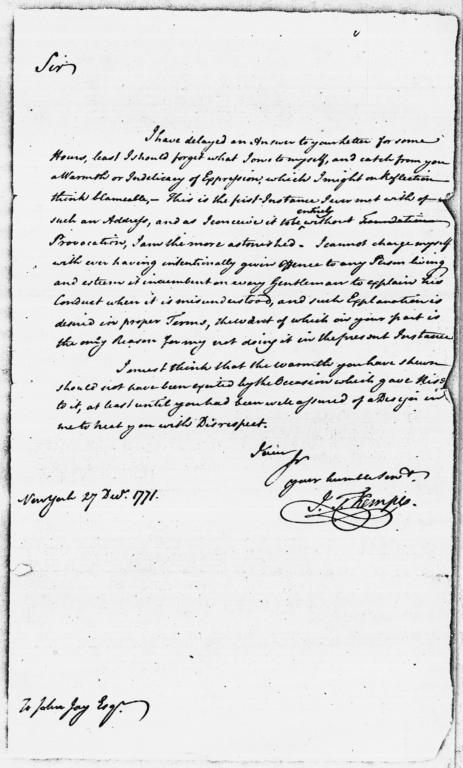 Sir
I have delayed an Answer to your Letter for some
Hours, least I should forget what I owe to myself, and catch from you
a Warmth or Indelicacy of Expression, which I might on Reflection
think blameable, — This is the first Instance I ever met with of
such an Address, and as I conceive it to be entirely without Foundation
Provocation, I am the more astonished — I cannot charge myself
with ever having intentionally given offence to any Person living
and esteem it incumbent on every Gentleman to explain his
Conduct when it is misunderstood, and such Explanation is
desired in proper Terms, the want of which on your part is
the only Reason for my not doing it in the present Instance
I must think that the Warmth you have shewn
should not have been excited by the Occasion which gave Rise
to it, at least until you had been well assured of a Design in
me to treat you with Disrespect.
I am
Sr
your humble Servt.
J. T. Kempe.
New York 27 Decr. 1771.
To John Jay Esqr.